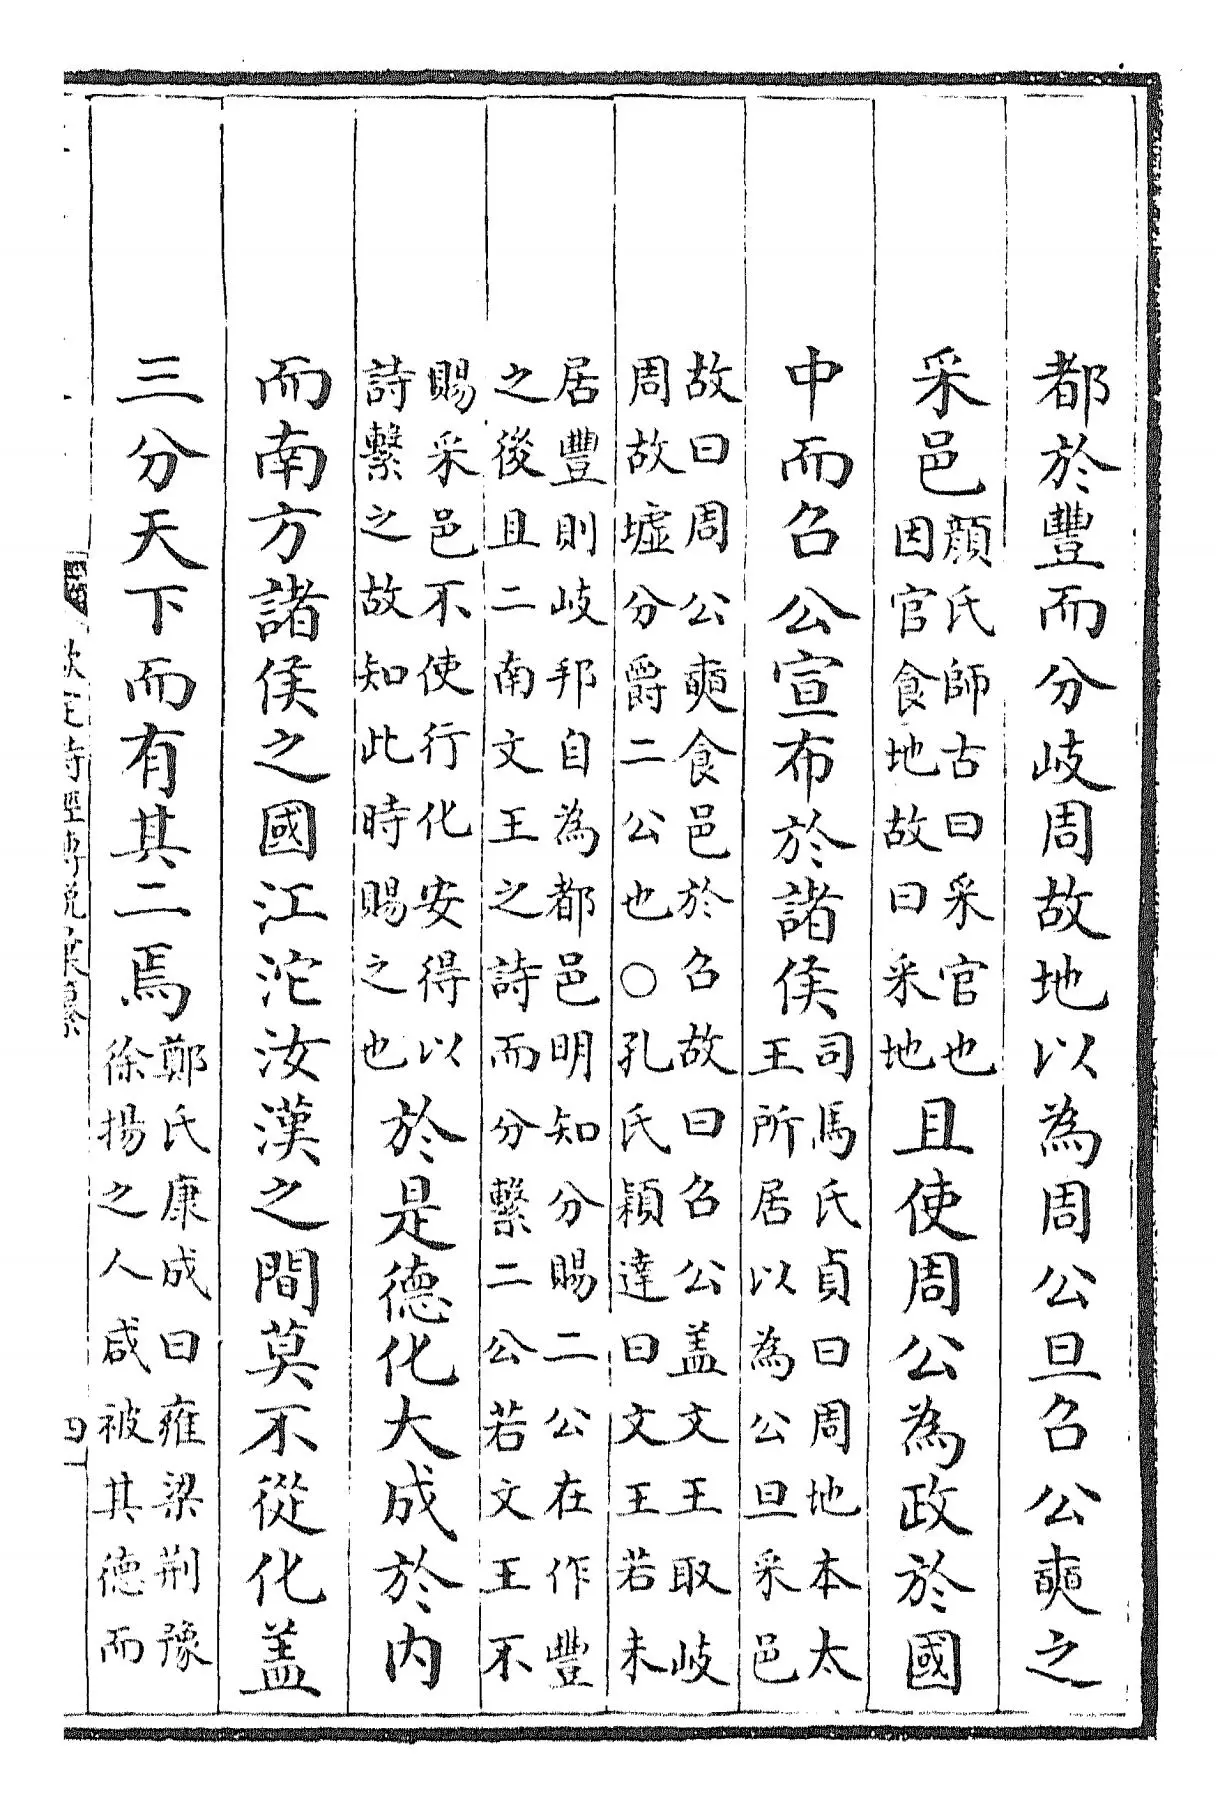 都於豐而分岐周故地以為周公旦召公奭之
采邑顔氏師古曰采官也因官食地故曰采地且使周公為政於國
中而召公宣布於諸侯司馬氏貞曰周地本太王所居以為公旦采邑
故曰周公奭食邑於召故曰召公盖文王取岐
周故墟分爵二公也○孔氏穎達曰文王若未
居豐則岐邦自為都邑明知分賜二公在作豐
之後且二南文王之詩而分繫二公若文王不
賜采邑不使行化安得以詩繫之故知此時賜之也於是德化大成於内
而南方諸侯之國江沱汝漢之間莫不從化盖
三分天下而有其二焉鄭氏康成曰雍梁荆豫徐揚之人咸被其德而